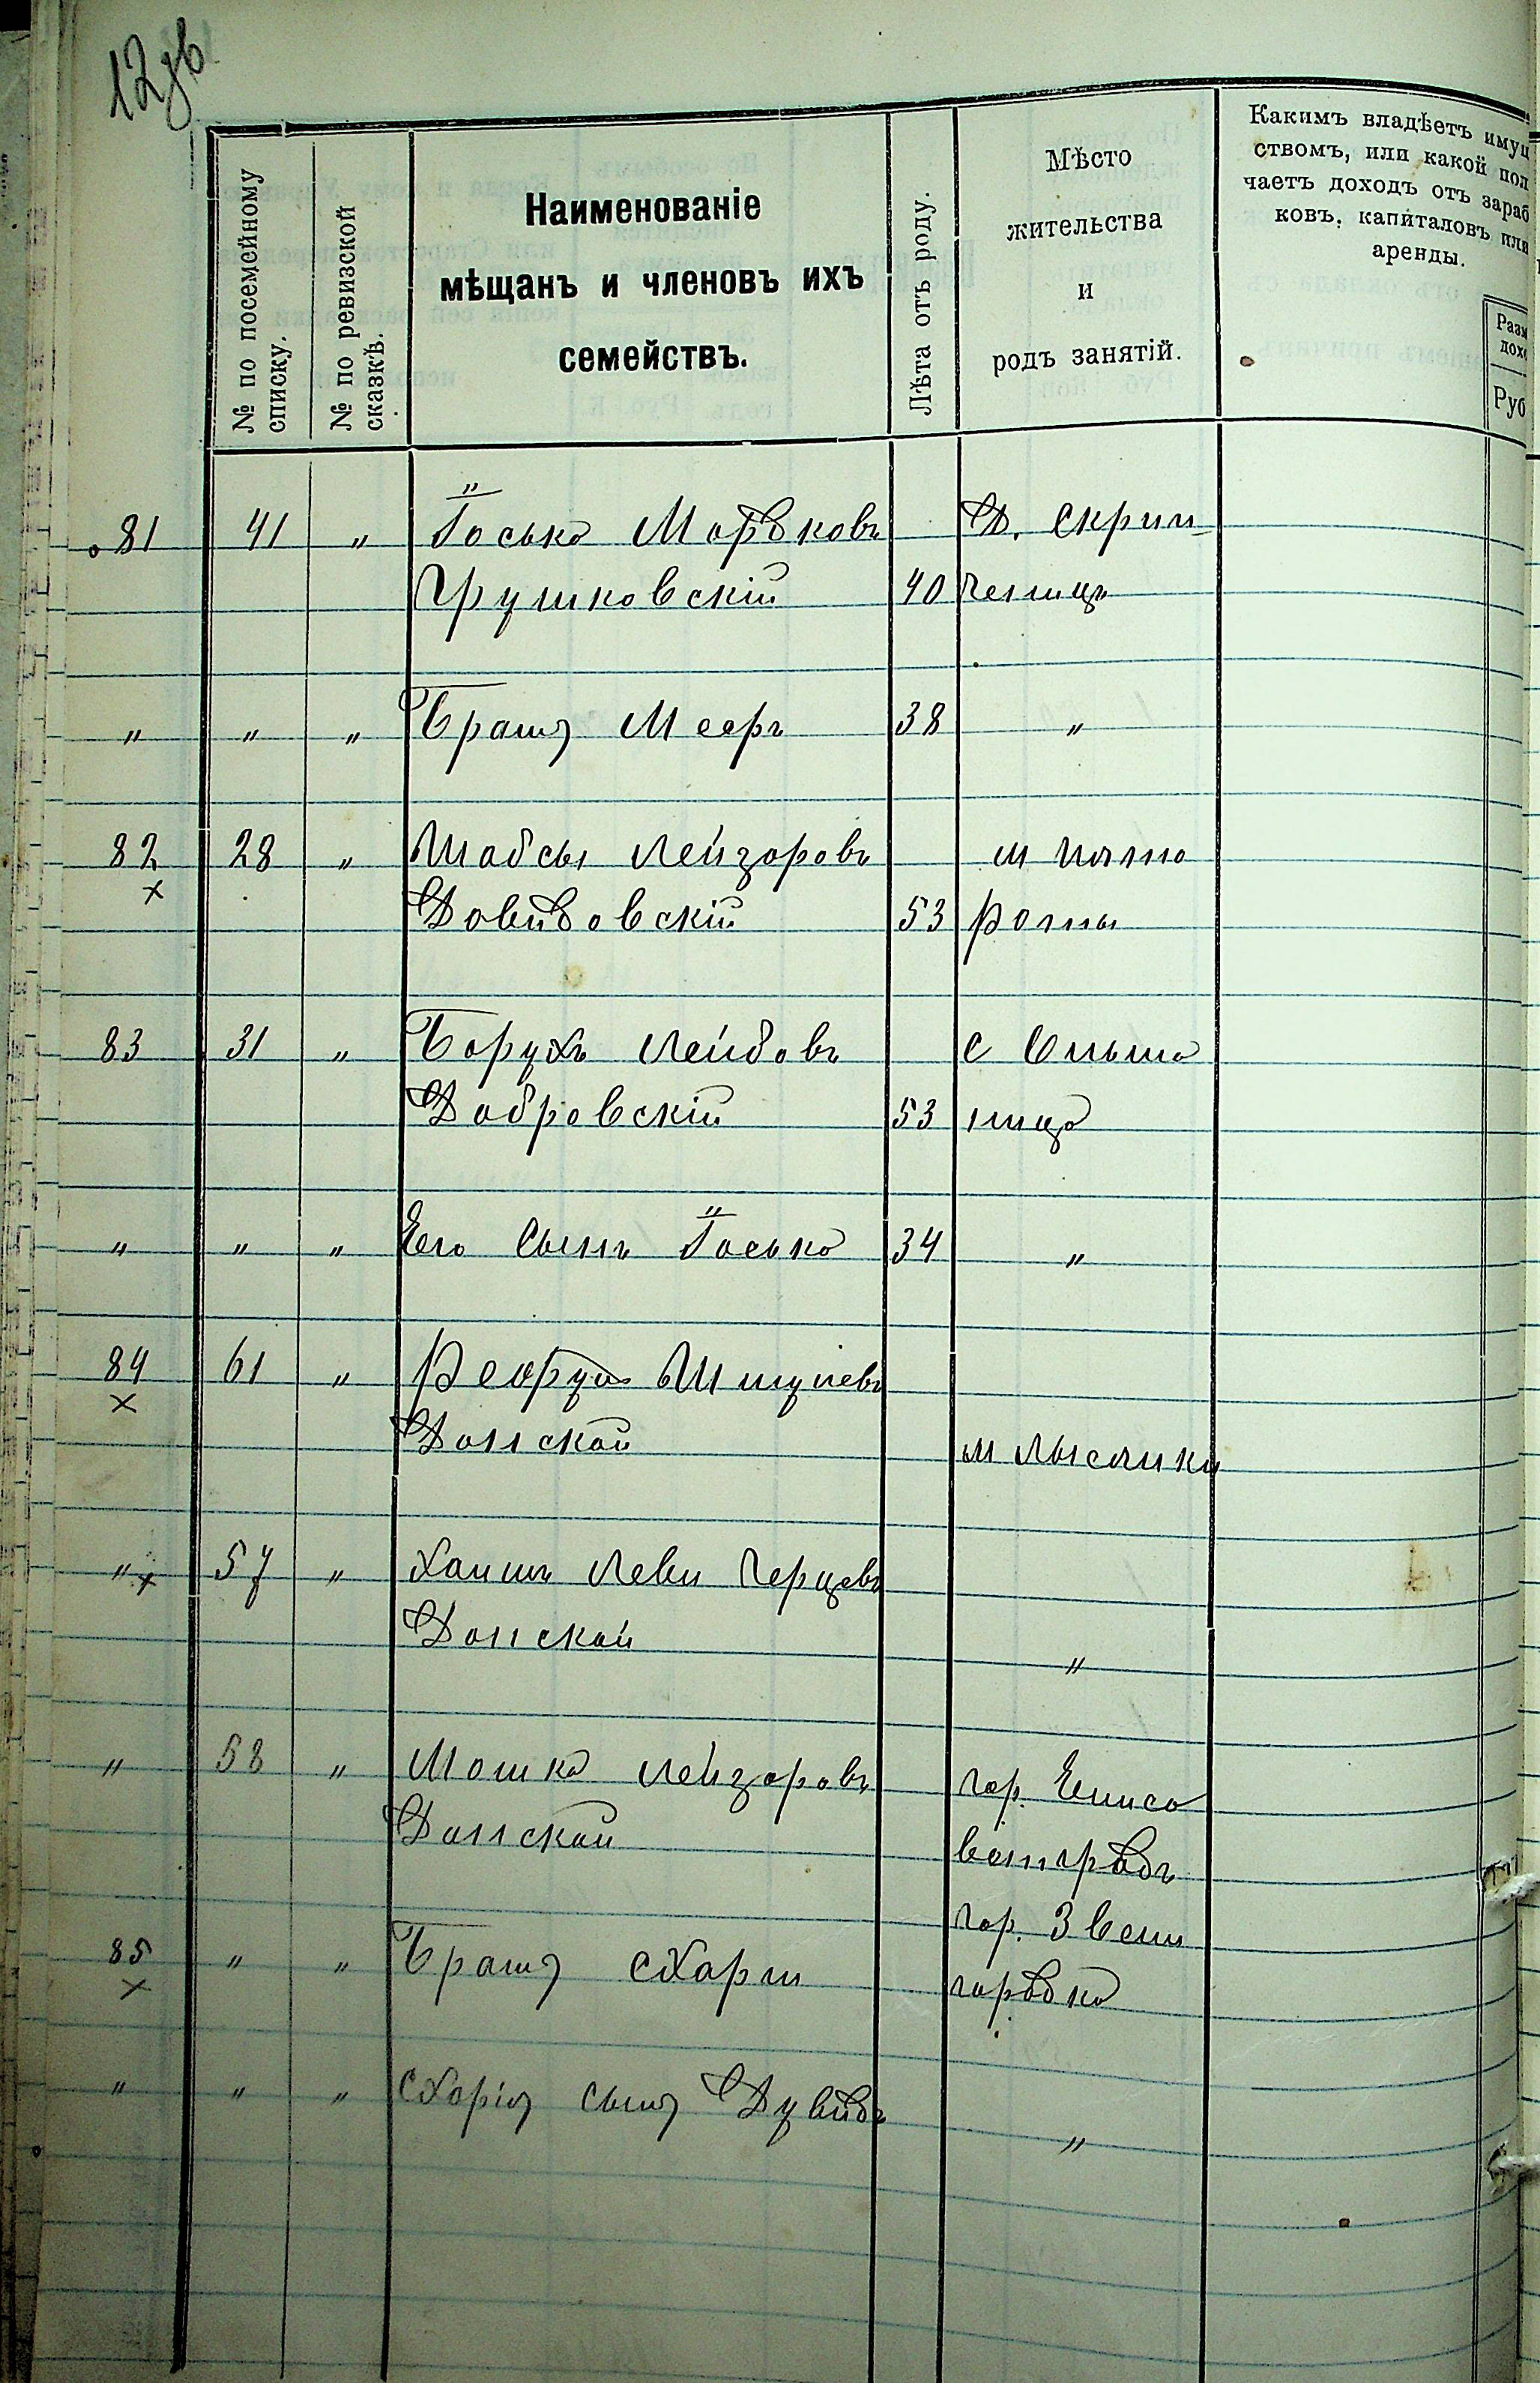 12об
№ по посемейному списку.
№ по ревизской сказкѣ.
Наименованіе
мѣщанъ и членовъ ихъ
семействъ.
Лѣта отъ роду.
Мѣсто
жительства
и
родъ занятій.
Какимъ владѣетъ имущ
ствомъ, или какой пол
чаетъ доходъ отъ зараб
ковъ, капиталовъ или
аренды.
Разм
дохо
Руб
81 41 " Іосько Мордковъ Д. Скрип-
Грушковскій 40 ченцъ
" " " Братъ Мееръ 38 "
82 28 " Шабсы Лейзоровъ м
Довидовскій 53
83 31 " Борухъ Лейбовъ с Ольша
Добровскій 53 ница
" " " Его Сынъ Іосько 34 "
84 61 " Шмулевъ
Донской м Лысянки
" 57 " Хаимъ Леви Герцевъ
Донской "
" 58 " Мошко Лейзоровъ гор. Елиса
Донской ветградъ
гор. Звени
85 " " Братъ Хорш городка
" " " Сынъ Дувидъ
"